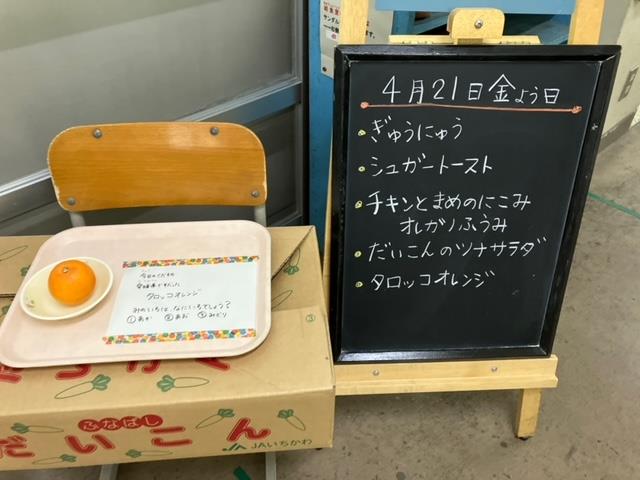 4月21日金よう日
ぎゅうにゅう
シュガートースト
チキンとまめのにこみ
オレガノふうみ
だいこんのツナサラダ
タロッコオレンジ
今日のくだもの
愛媛県でそだった
タロッコオレンジ
みのいろは、なにいろでしょう？
①あか ②あお ③みどり
ふなばし
だいこん
JAいちかわ